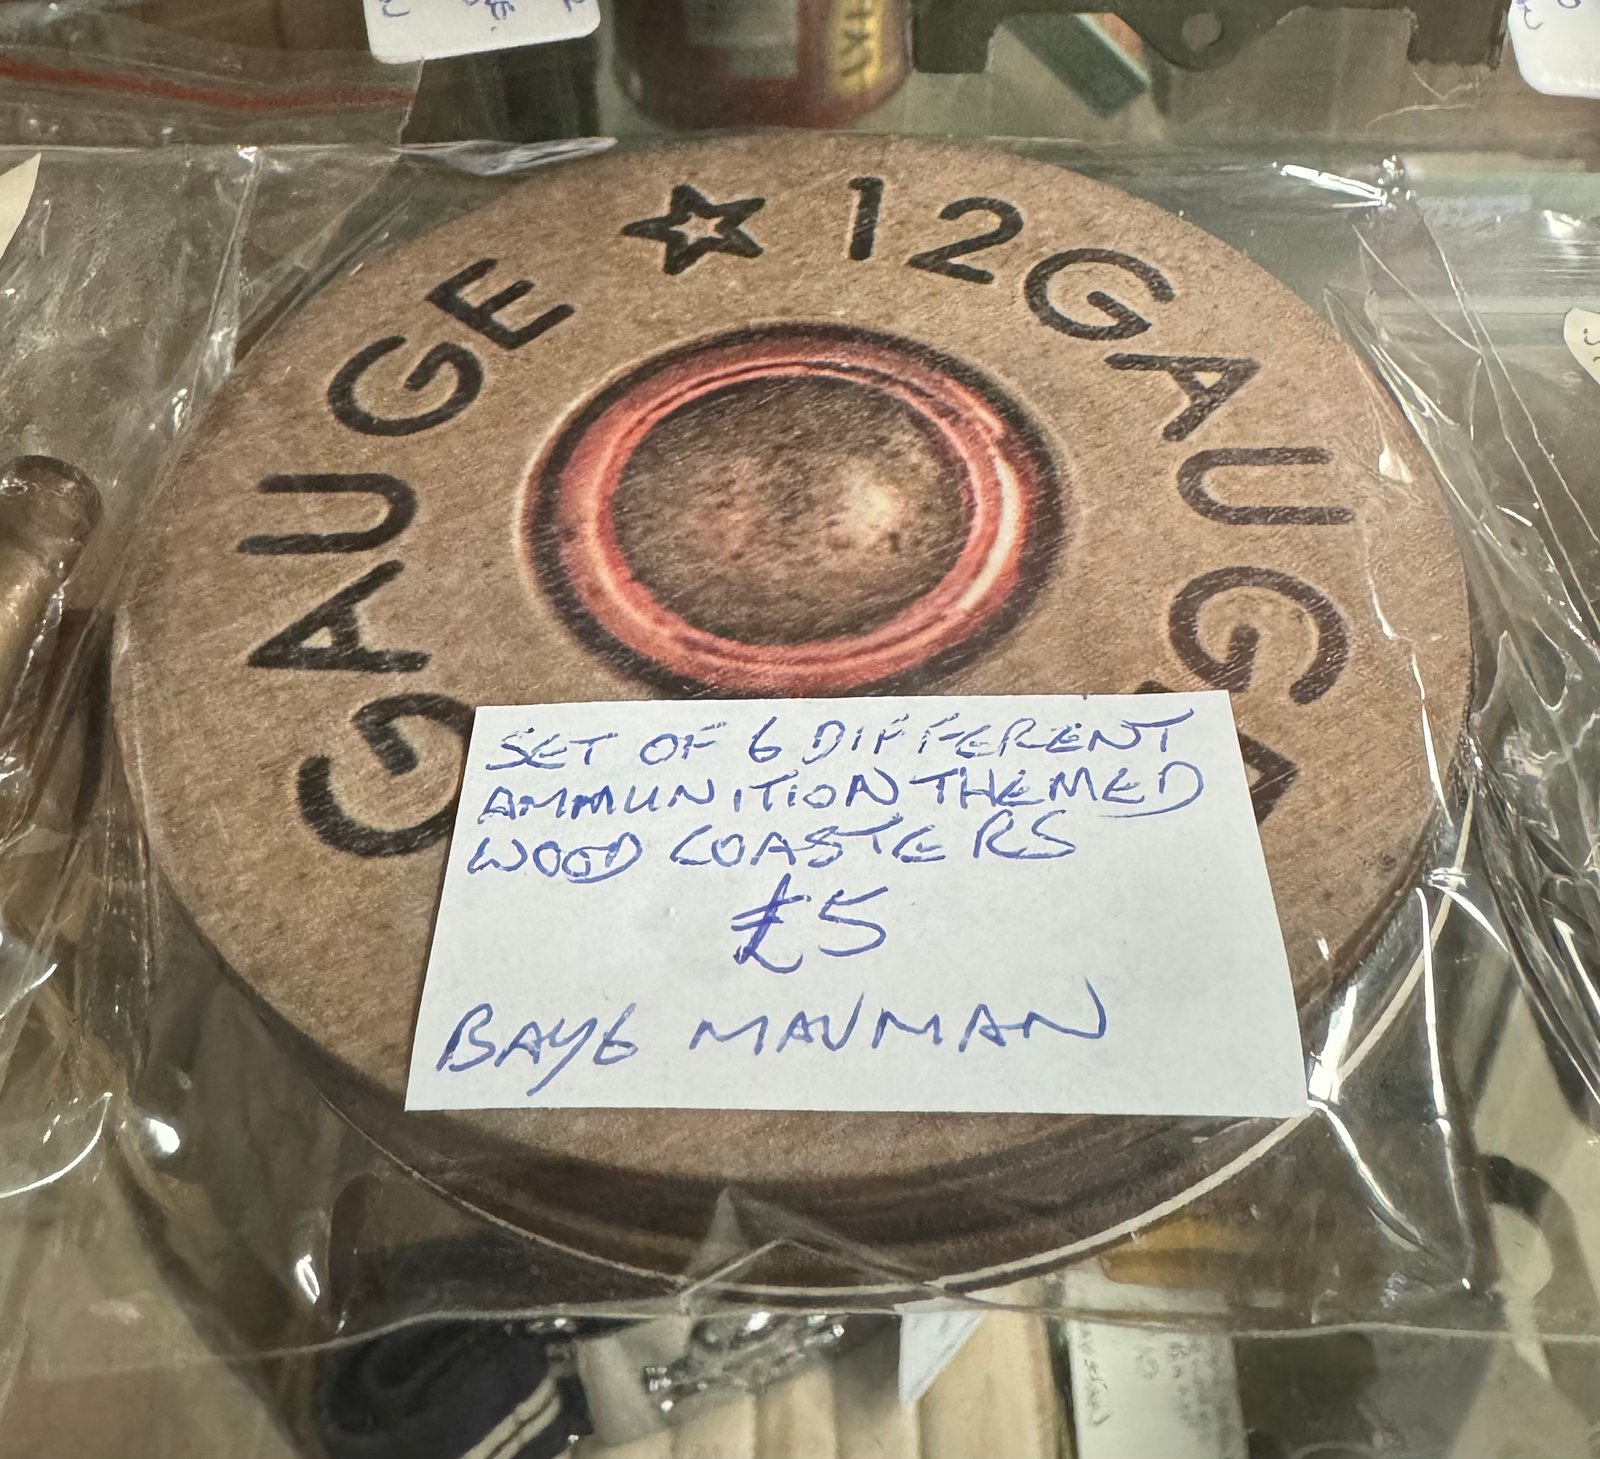 ☆ 12 GAUGE
GAUGE
SET OF 6 DIFFERENT
AMMUNITION THEMED
WOOD COASTERS
£5
BAY 6 MAVMAN